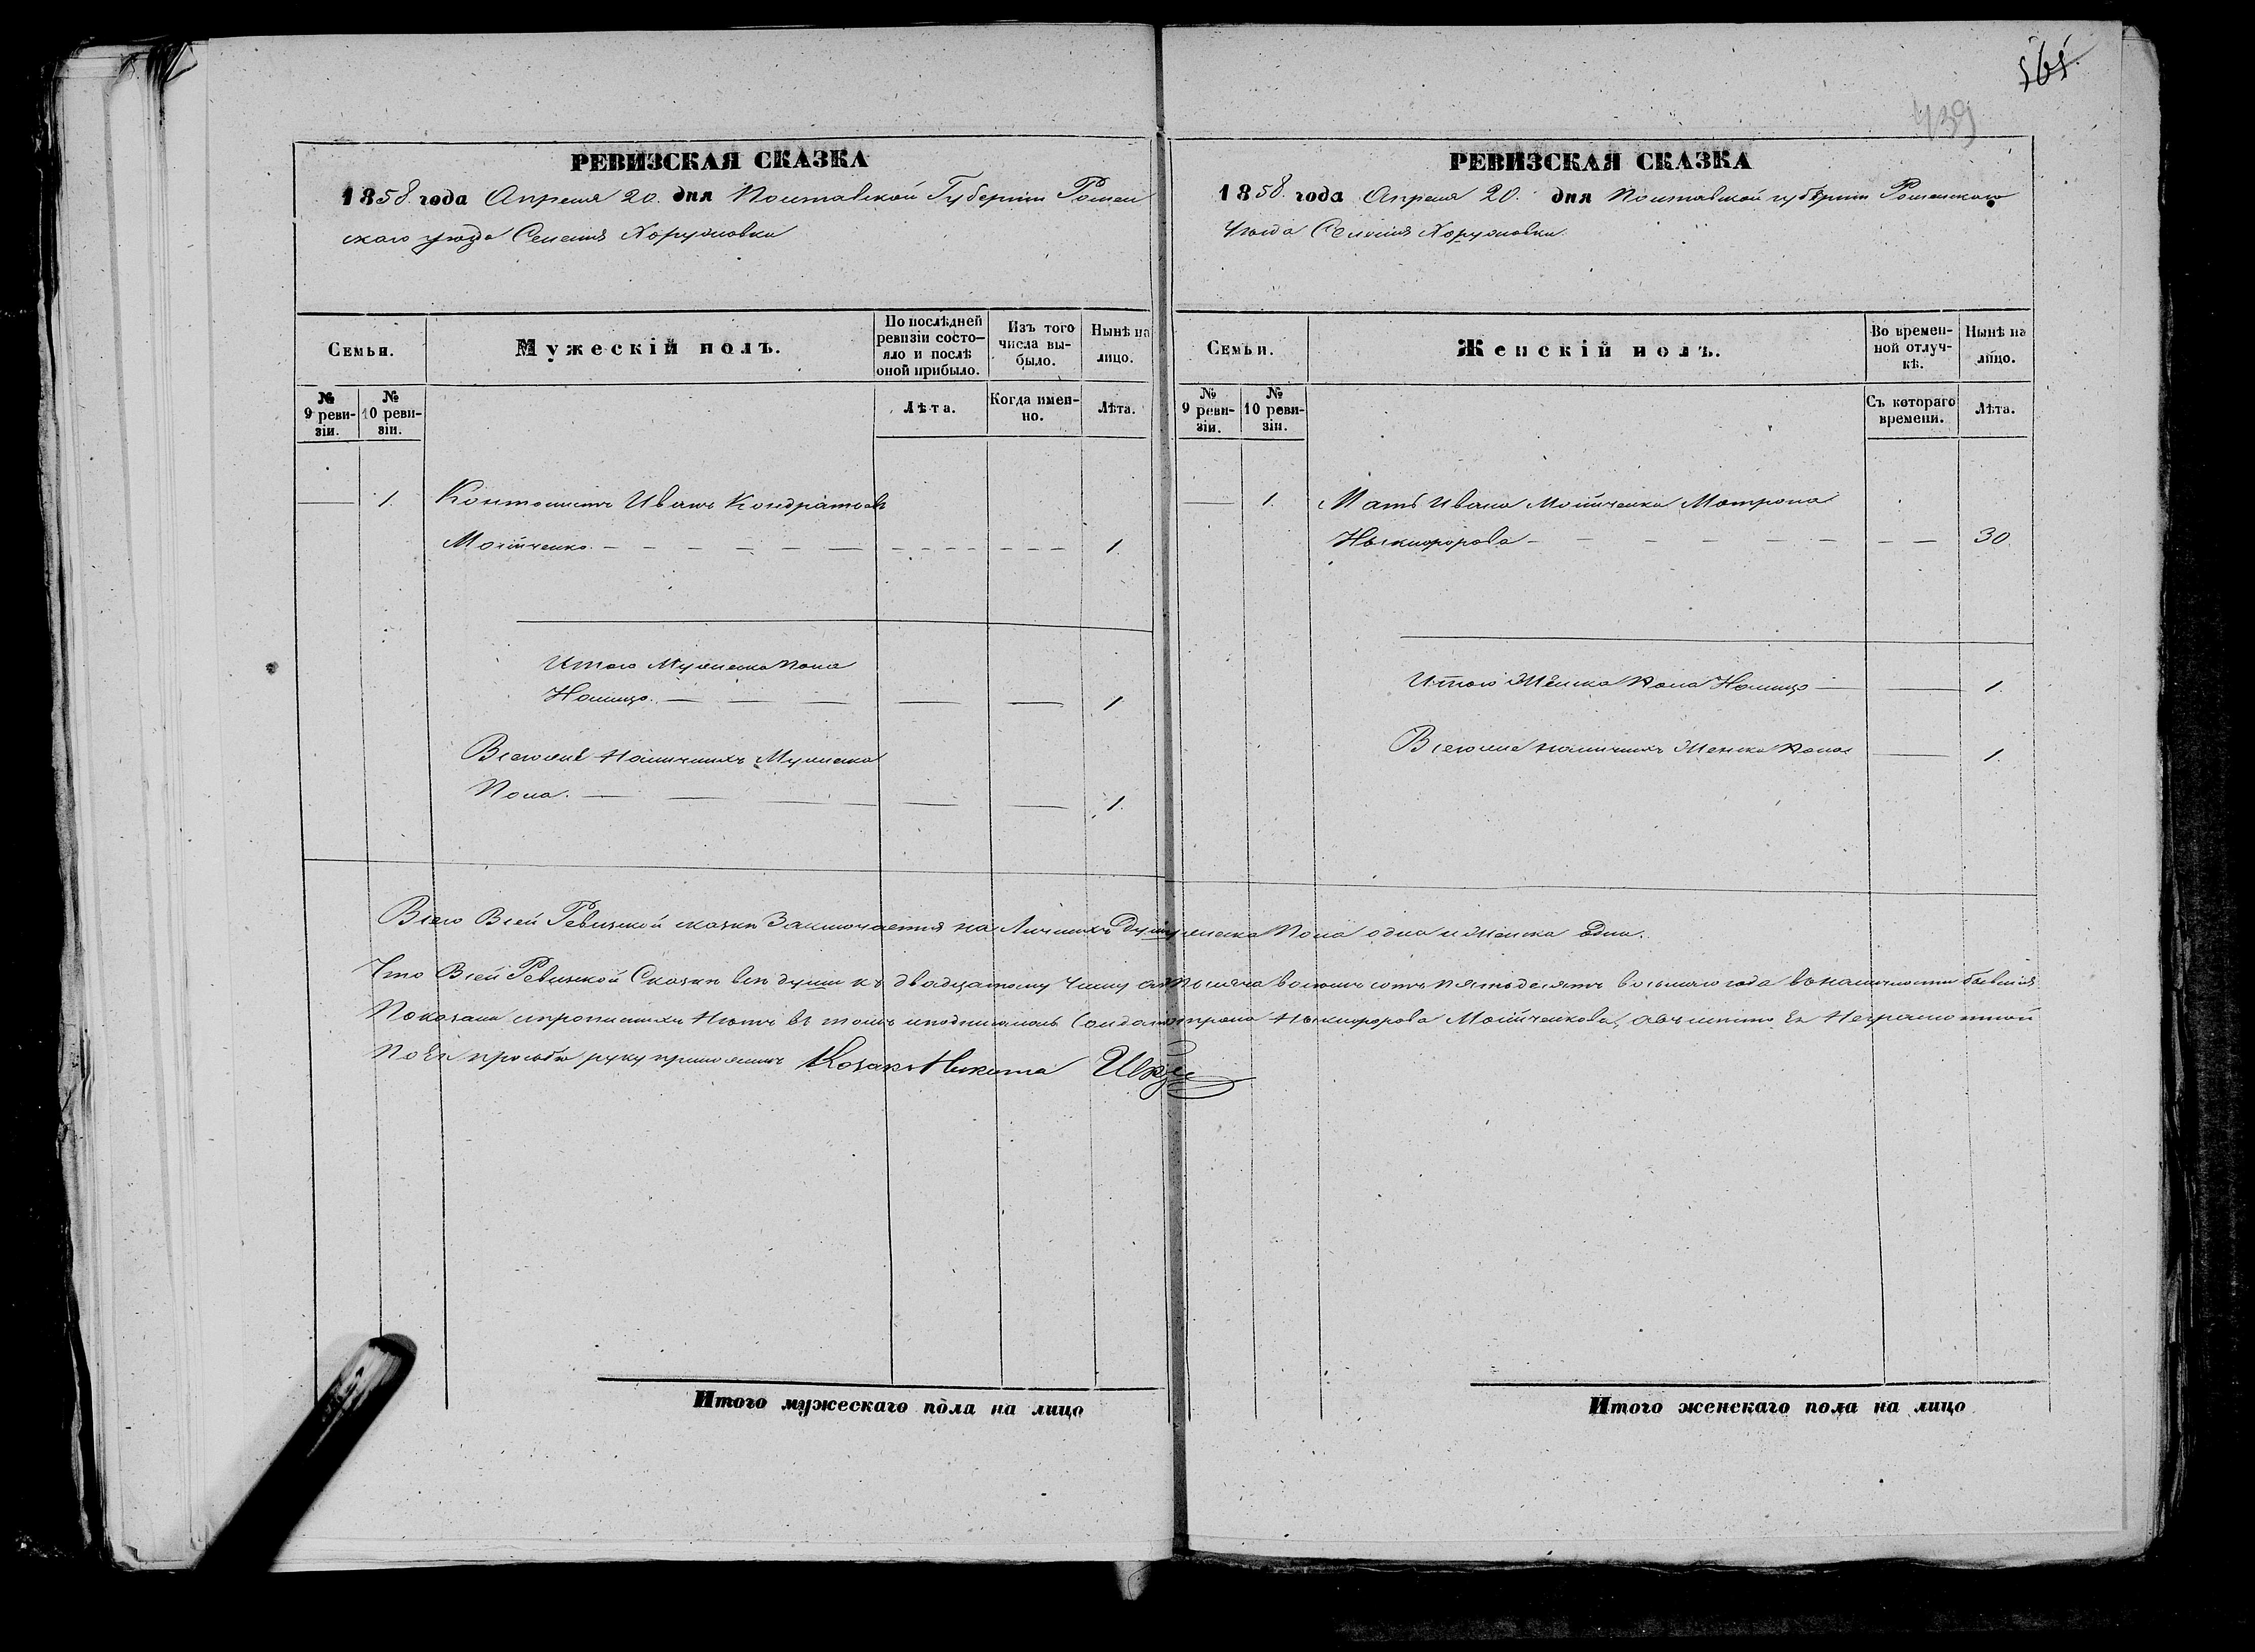 565.
439
РЕВИЗСКАЯ СКАЗКА
1858. года Апреля 20. дня Полтавской Губернiи Ромен
скаго уезда Селенiя Хоружовки
Семьи.
Мужескiй полъ.
По послѣдней ревизiи состо-
яло и послѣ оной прибыло.
Изъ того числа вы-
было.
Нынѣ на лицо.
№ 9 реви-
зiи.
№ 10 реви-
зiи.
Лѣта.
Когда имен-
но.
Лѣта.
— 1. Кантонистъ Иванъ Кондратовъ
Мойченко. — — — 1.
Итого Мужеска Пола
Налицо. — — — 1
Всеголие Наличныхъ Мужеска
Пола. — — — 1.
РЕВИЗСКАЯ СКАЗКА
1858. года Апреля 20. дня Полтавской губернiи Роменскаго
Уезда Селенiя Хоружовки.
Семьи.
Женскiй полъ.
Во времен-
ной отлуч-
кѣ.
Нынѣ на лицо.
№ 9 реви-
зiи.
№ 10 реви-
зiи.
Съ котораго времени.
Лѣта.
— 1. Мать Ивана Мойченка Матрона
Никифорова — — — 30.
Итого Женска Пола Налицо — — 1.
Всеголие наличныхъ Женска Пола — 1.
Всего Всей Ревизской сказки Заключается на Личныхъ Душъ Мужеска Пола одна и Женска Одна.
Что Всей Ревизской Сказке все души къ двадцатому Числу Апреля тысяча восемь сотъ пятьдесятъ восьмаго года въ наличности бывшiя
Показаны и прописныхъ Нетъ въ томъ и подписалась Солдатка Матрона Никифорова Мойченкова, а вместо Ея Неграмотной
По Ея прозьбе руку приложилъ Козакъ Никита
Итого мужескаго пола на лицо
Итого женскаго пола на лицо